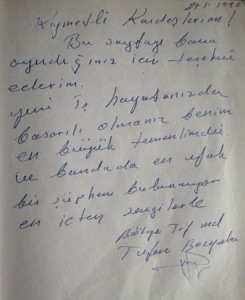 21-1-1992
Kıymetli Kardeşlerime!
Bu sayfayı bana
ayırdığınız için teşekkür
ederim.
yeni İş hayatınızda
başarılı olmanız benim
en büyük temennimdir.
ve bundada en ufak
bir şüphem bulunmuyor
en içten sevgilerle
Bölge
Tufan